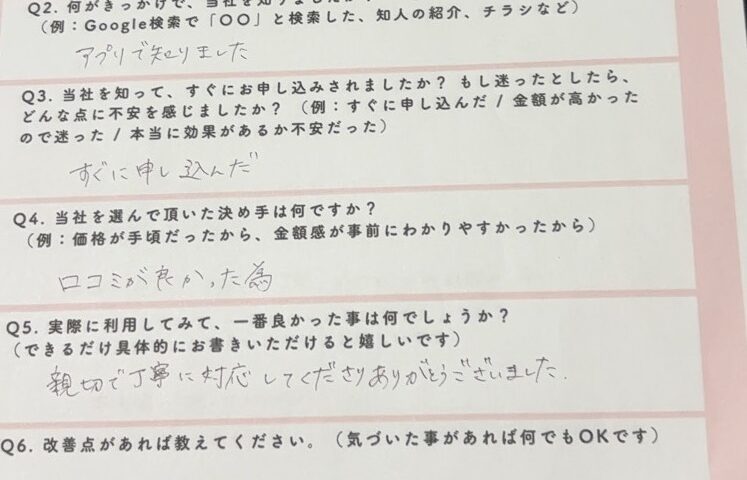 Q2. 何がきっかけで、当社を知りましたか
(例：Google検索で「〇〇」と検索した、知人の紹介、チラシなど)
アプリで知りました
Q3. 当社を知って、すぐにお申し込みされましたか？ もし迷ったとしたら、
どんな点に不安を感じましたか？（例：すぐに申し込んだ / 金額が高かった
ので迷った / 本当に効果があるか不安だった）
すぐに申し込んだ
Q4. 当社を選んで頂いた決め手は何ですか？
（例：価格が手頃だったから、金額感が事前にわかりやすかったから）
口コミが良かった為
Q5. 実際に利用してみて、一番良かった事は何でしょうか？
（できるだけ具体的にお書きいただけると嬉しいです）
親切で丁寧に対応してくださりありがとうございました.
Q6. 改善点があれば教えてください。（気づいた事があれば何でもOKです）